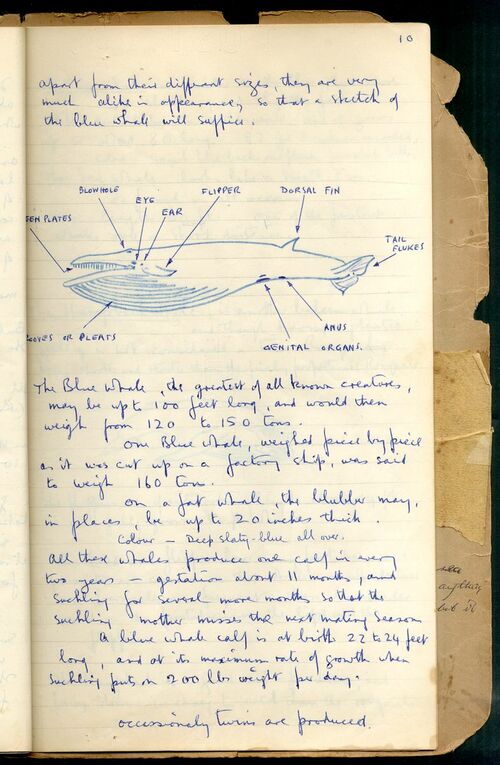 10
apart from their different sizes, they are very
much alike in appearance, so that a sketch of
the blue whale will suffice.
BLOWHOLE
EYE
EAR
FLIPPER
DORSAL FIN
EEN PLATES
TAIL FLUKES
OOVES OR PLEATS
ANUS
GENITAL ORGANS.
The Blue Whale, the greatest of all known creatures,
may be up to 100 feet long, and would then
weigh from 120 to 150 tons.
One Blue Whale, weighed piece by piece
as it was cut up on a factory ship, was said
to weigh 160 tons.
On a fat whale the blubber may,
in places, be up to 20 inches thick.
Colour - Deep slaty-blue all over.
All these whales produce one calf in every
two years - gestation about 11 months, and
suckling for several more months so that the
suckling mother misses the next mating season
A blue whale calf is at birth 22 to 24 feet
long, and at its maximum rate of growth when
suckling puts on 200 lbs weight per day.
occassionaly twins are produced.
sea
anything
but it